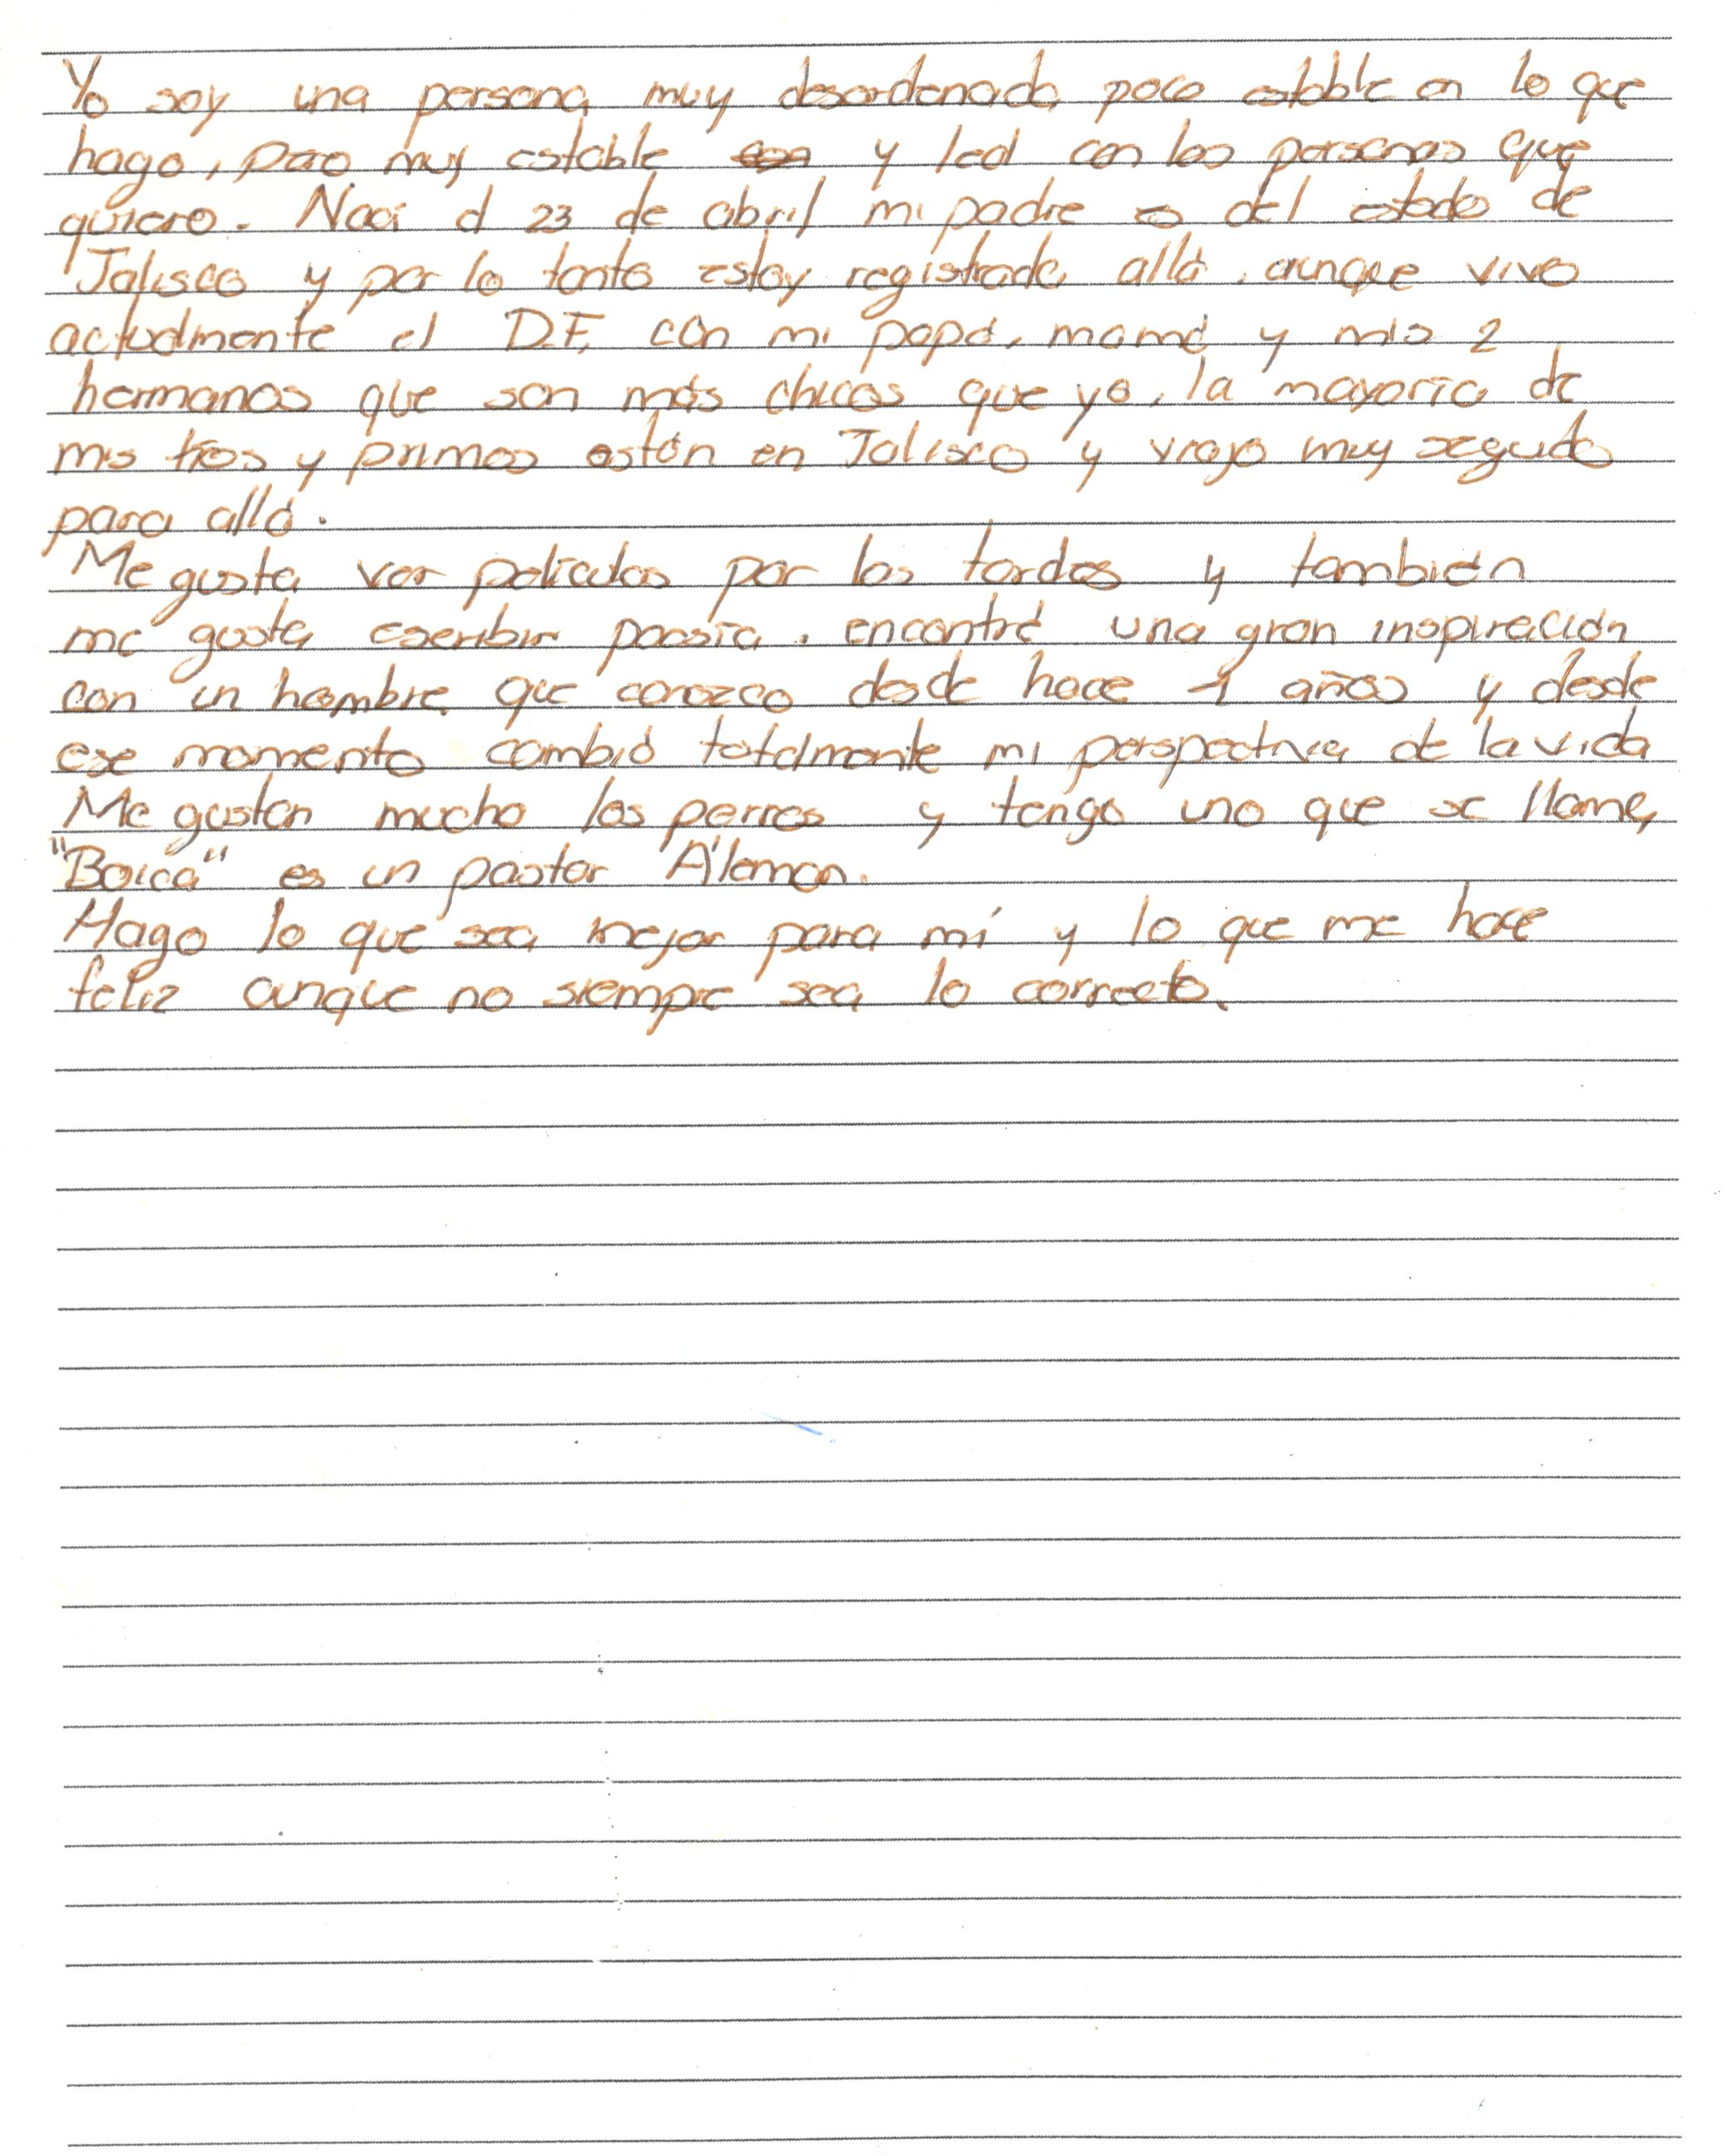 Yo soy una persona muy desordenada poco estable en lo que
hago, pero muy estable y leal con las personas que
quiero. Nací el 23 de abril mi padre es del estado de
Jalisco y por lo tanto estoy registrada allá, aunque vivo
actualmente el D.F, con mi papá, mamá y mis 2
hermanos que son más chicos que yo, la mayoría de
mis tíos y primos están en Jalisco y viajo muy seguido
para allá.
Me gusta ver películas por las tardes y también
me gusta escribir poesía, encontré una gran inspiración
con un hombre que conozco desde hace años y desde
ese momento cambió totalmente mi perspectiva de la vida
Me gustan mucho los perros y tengo uno que se llama
es un pastor Áleman.
Hago lo que sea mejor para mí y lo que me hace
feliz aunque no siempre sea lo correcto.